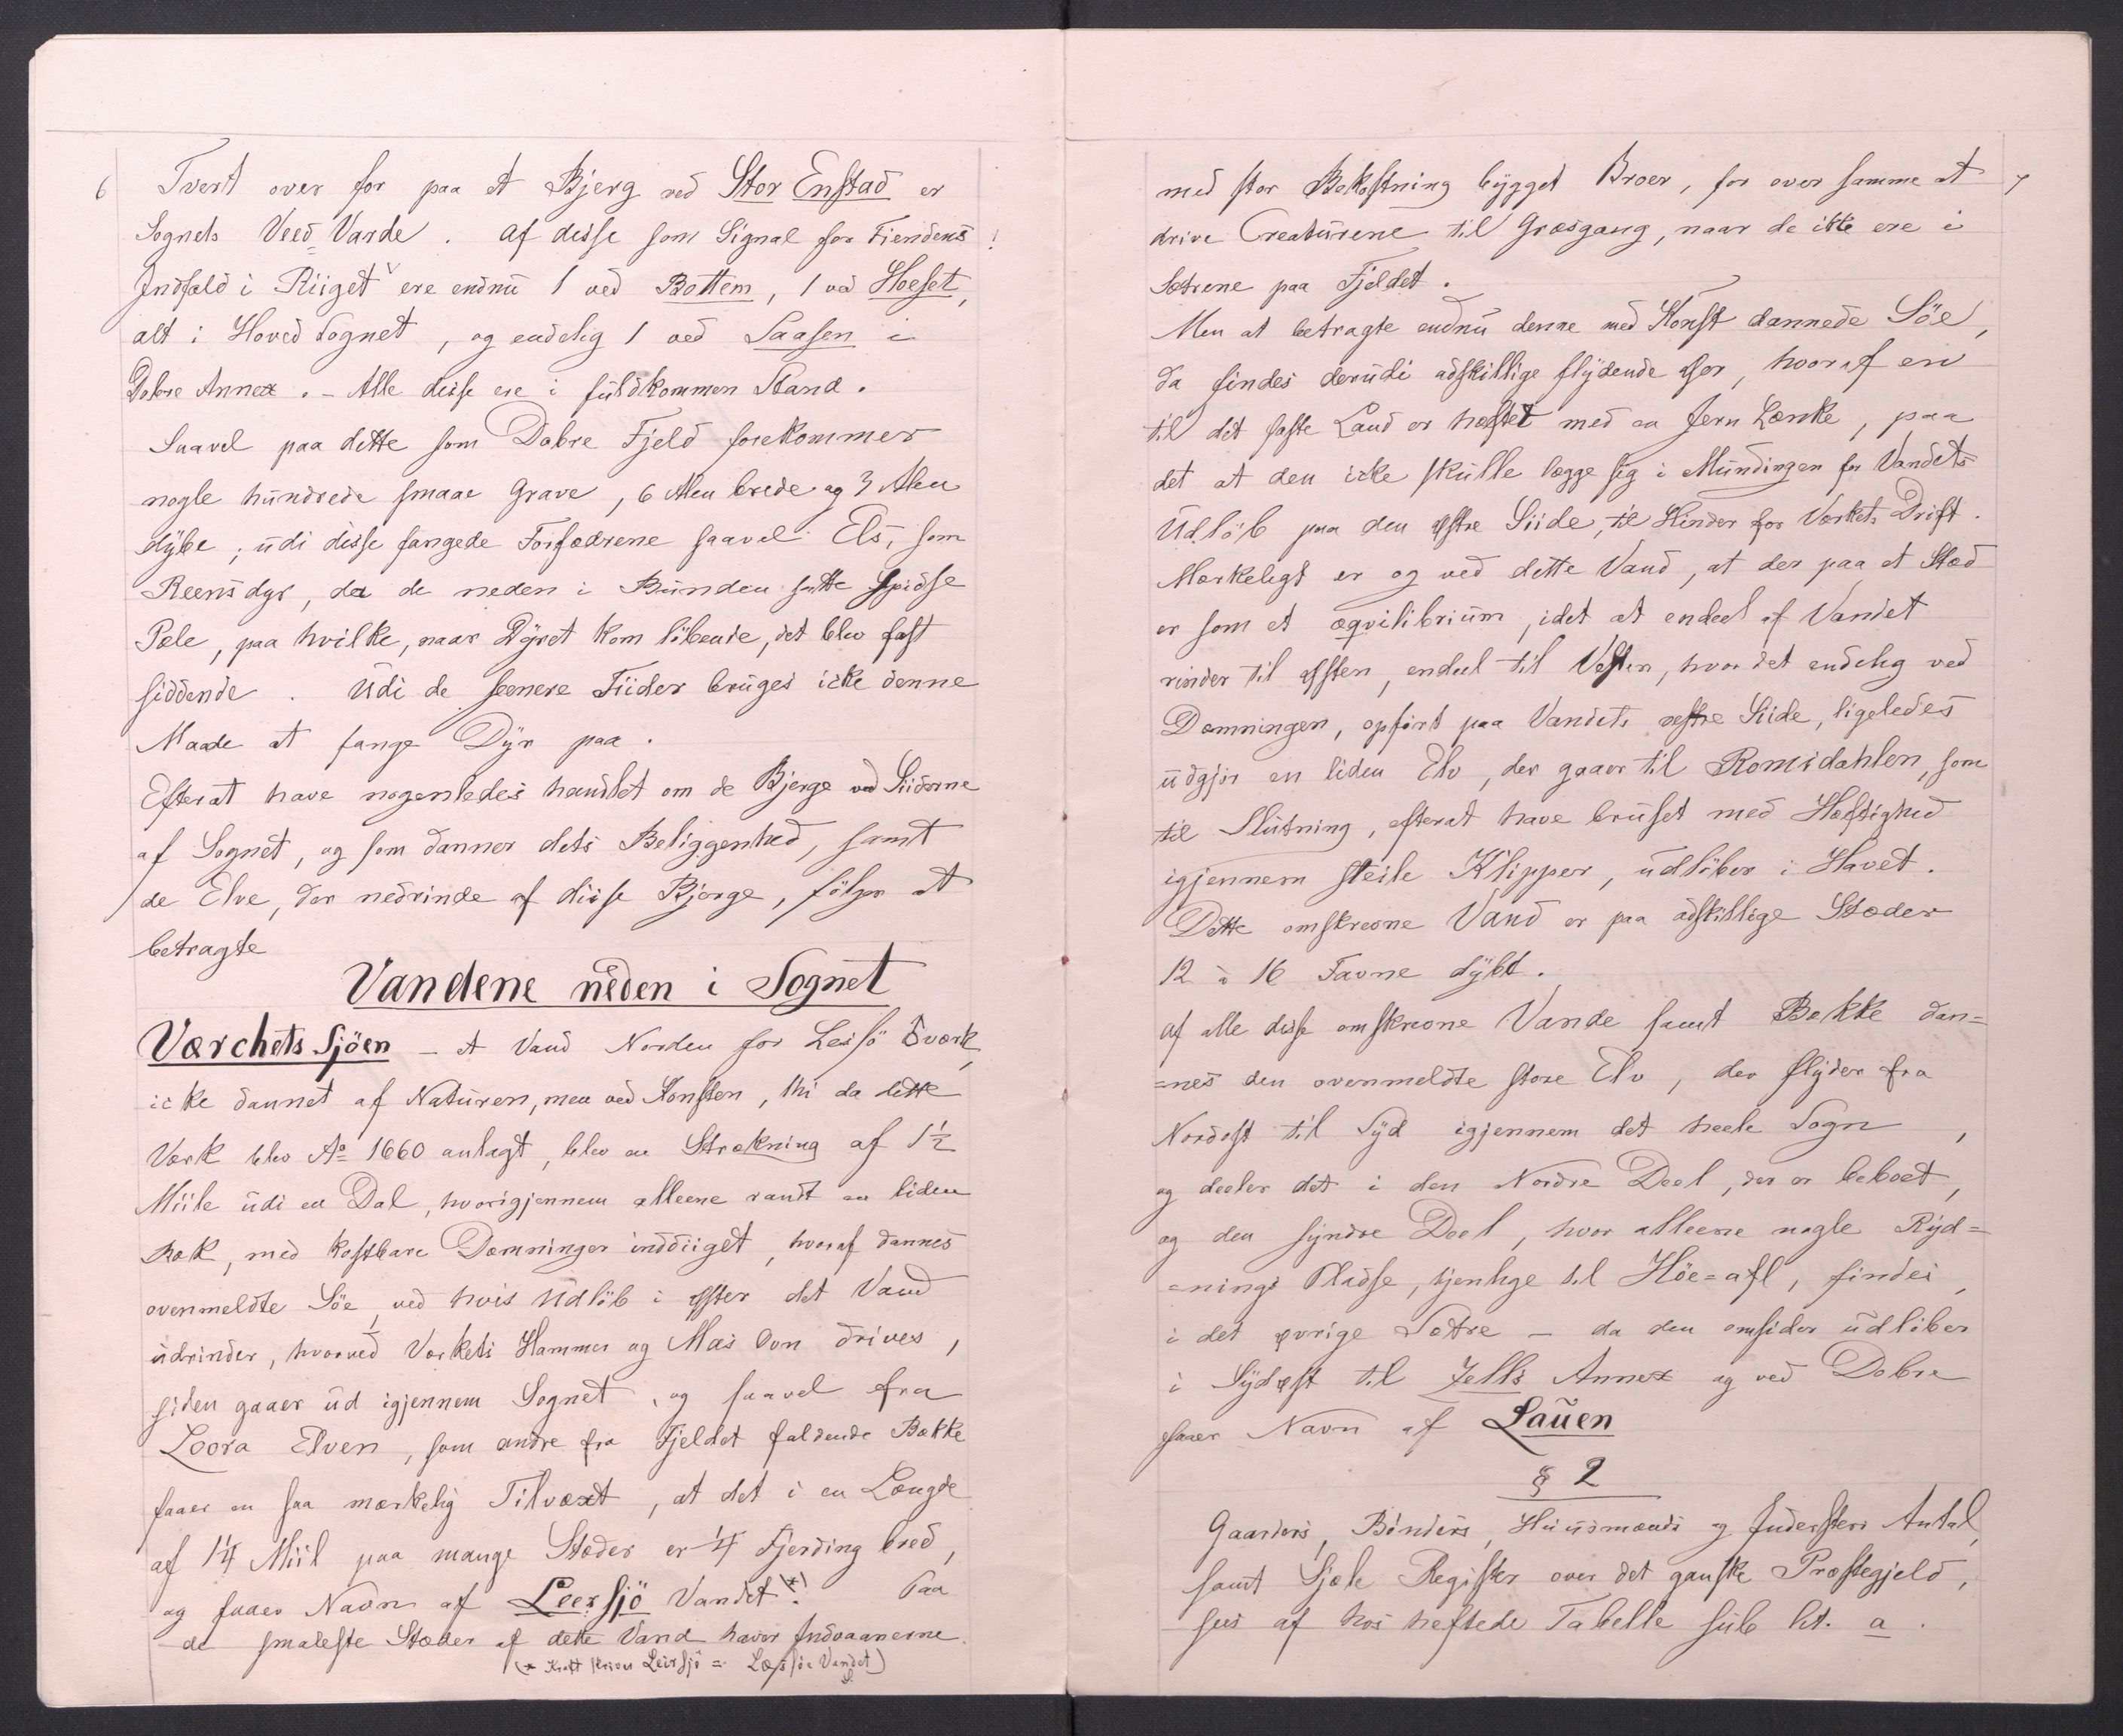 6
Tvert over for paa et Bjerg ved Stor Enstad er
Sognets Veed=Varde. Af disse som Signal for Fiendens
Indfald i Riiget ere endnu 1 ved Bottem, 1 ved Hoeset,
alt i Hoved Sognet, og endelig 1 ved Laasen i
Dobre Annex. – Alle disse ere i fuldkommen Stand.
Saavel paa dette som Dobre Fjeld forekommer
nogle hundrede smaae Grave, 6 Alen brede og 3 Alen
dybe; udi disse fangede Forfædrene saavel Els, som
Reensdyr, da de neden i Bunden satte Spidse
Pæle, paa hvilke, naar Dyret kom löbende, det blev fast
siddende. Udi de seenere Tiider bruges icke denne
Maade at fange Dyr paa.
Efterat have nogenledes handlet om de Bjerge ved Siiderne
af Sognet, og som danner dets Beliggenhed, samt
de Elve, der nedrinde af disse Bjerge, fölger at
betragte
Vandene neden i Sognet
Værchets Sjöen – et Vand Norden for Lessö Værk,
icke dannet af Naturen, men ved Konsten, thi da dette
Værk blev Aº 1660 anlagt, blev en Strækning af 1½
Miile udi en Dal, hvorigjennem alleene randt en liden
Bæk, med kostbare Dæmninger inddiiget, hvoraf dannes
ovenmeldte Söe, ved hvis Udlöb i Øster det Vand
udrinder, hvorved Værkets Hammer og Mas Ovn drives,
siden gaaer ud igjennem Sognet, og saavel fra
Loora Elven, som andre fra Fjeldet faldende Bække
faaer en saa mærkelig Tilvæxt, at det i en Længde
af 1¼ Miil paa mange Stæder er ¼ Fjerding bred,
og faaer Navn af Leersjö Vandet *). Paa
de smaleste Stæder af dette Vand haver Indvaanerne
(* Kraft skriver Leirsjö = Læssöe Vandet)
7
med stor Bekostning bygget Broer, for over samme at
drive Creaturene til Græsgang, naar de ikke ere i
Sætrene paa Fjeldet.
Men at betragte endnu denne med Konst dannede Söe,
da findes derudi adskillige flydende Øer, hvoraf en
til det faste Land er hæftet med en Jern Lænke, paa
det at den icke skulle lægge sig i Mundingen for Vandets
Udlöb paa den østre Siide, til Hinder for Værkets Drift.
Mærkeligt er og ved dette Vand, at der paa et Stæd
er som et æqvilibrium, idet at endeel af Vandet
rinder til Østen, endeel til Vesten, hvor det endelig ved
Dæmningen, opfört paa Vandets vestre Siide, ligeledes
udgjör en liden Elv, der gaaer til Romsdahlen, som
til Slutning, efterat have bruset med Hæftighed
igjennem steile Klipper, udlöber i Havet.
Dette omskrevne Vand er paa adskillige Stæder
12 à 16 Favne dybt.
Af alle disse omskrevne Vande samt Bække dan=
=nes den ovenmeldte store Elv, der flyder fra
Nordost til Syd igjennem det heele Sogn,
og deeler det i den Nordre Deel, der er beboet,
og den syndre Deel, hvor alleene nogle Ryd=
=nings Pladse, tjenlige til Höe=afl, findes,
i det øvrige Sætre – da den omsider udlöber
i Sydøst til Jells Annex og ved Dobre
faaer Navn af Lauen
§ 2
Gaarders, Bönders, Huusmænds og Indersters Antal,
samt Sjæle Register over det ganske Præstegjeld,
sees af hos heftede Tabelle sub lit. a.